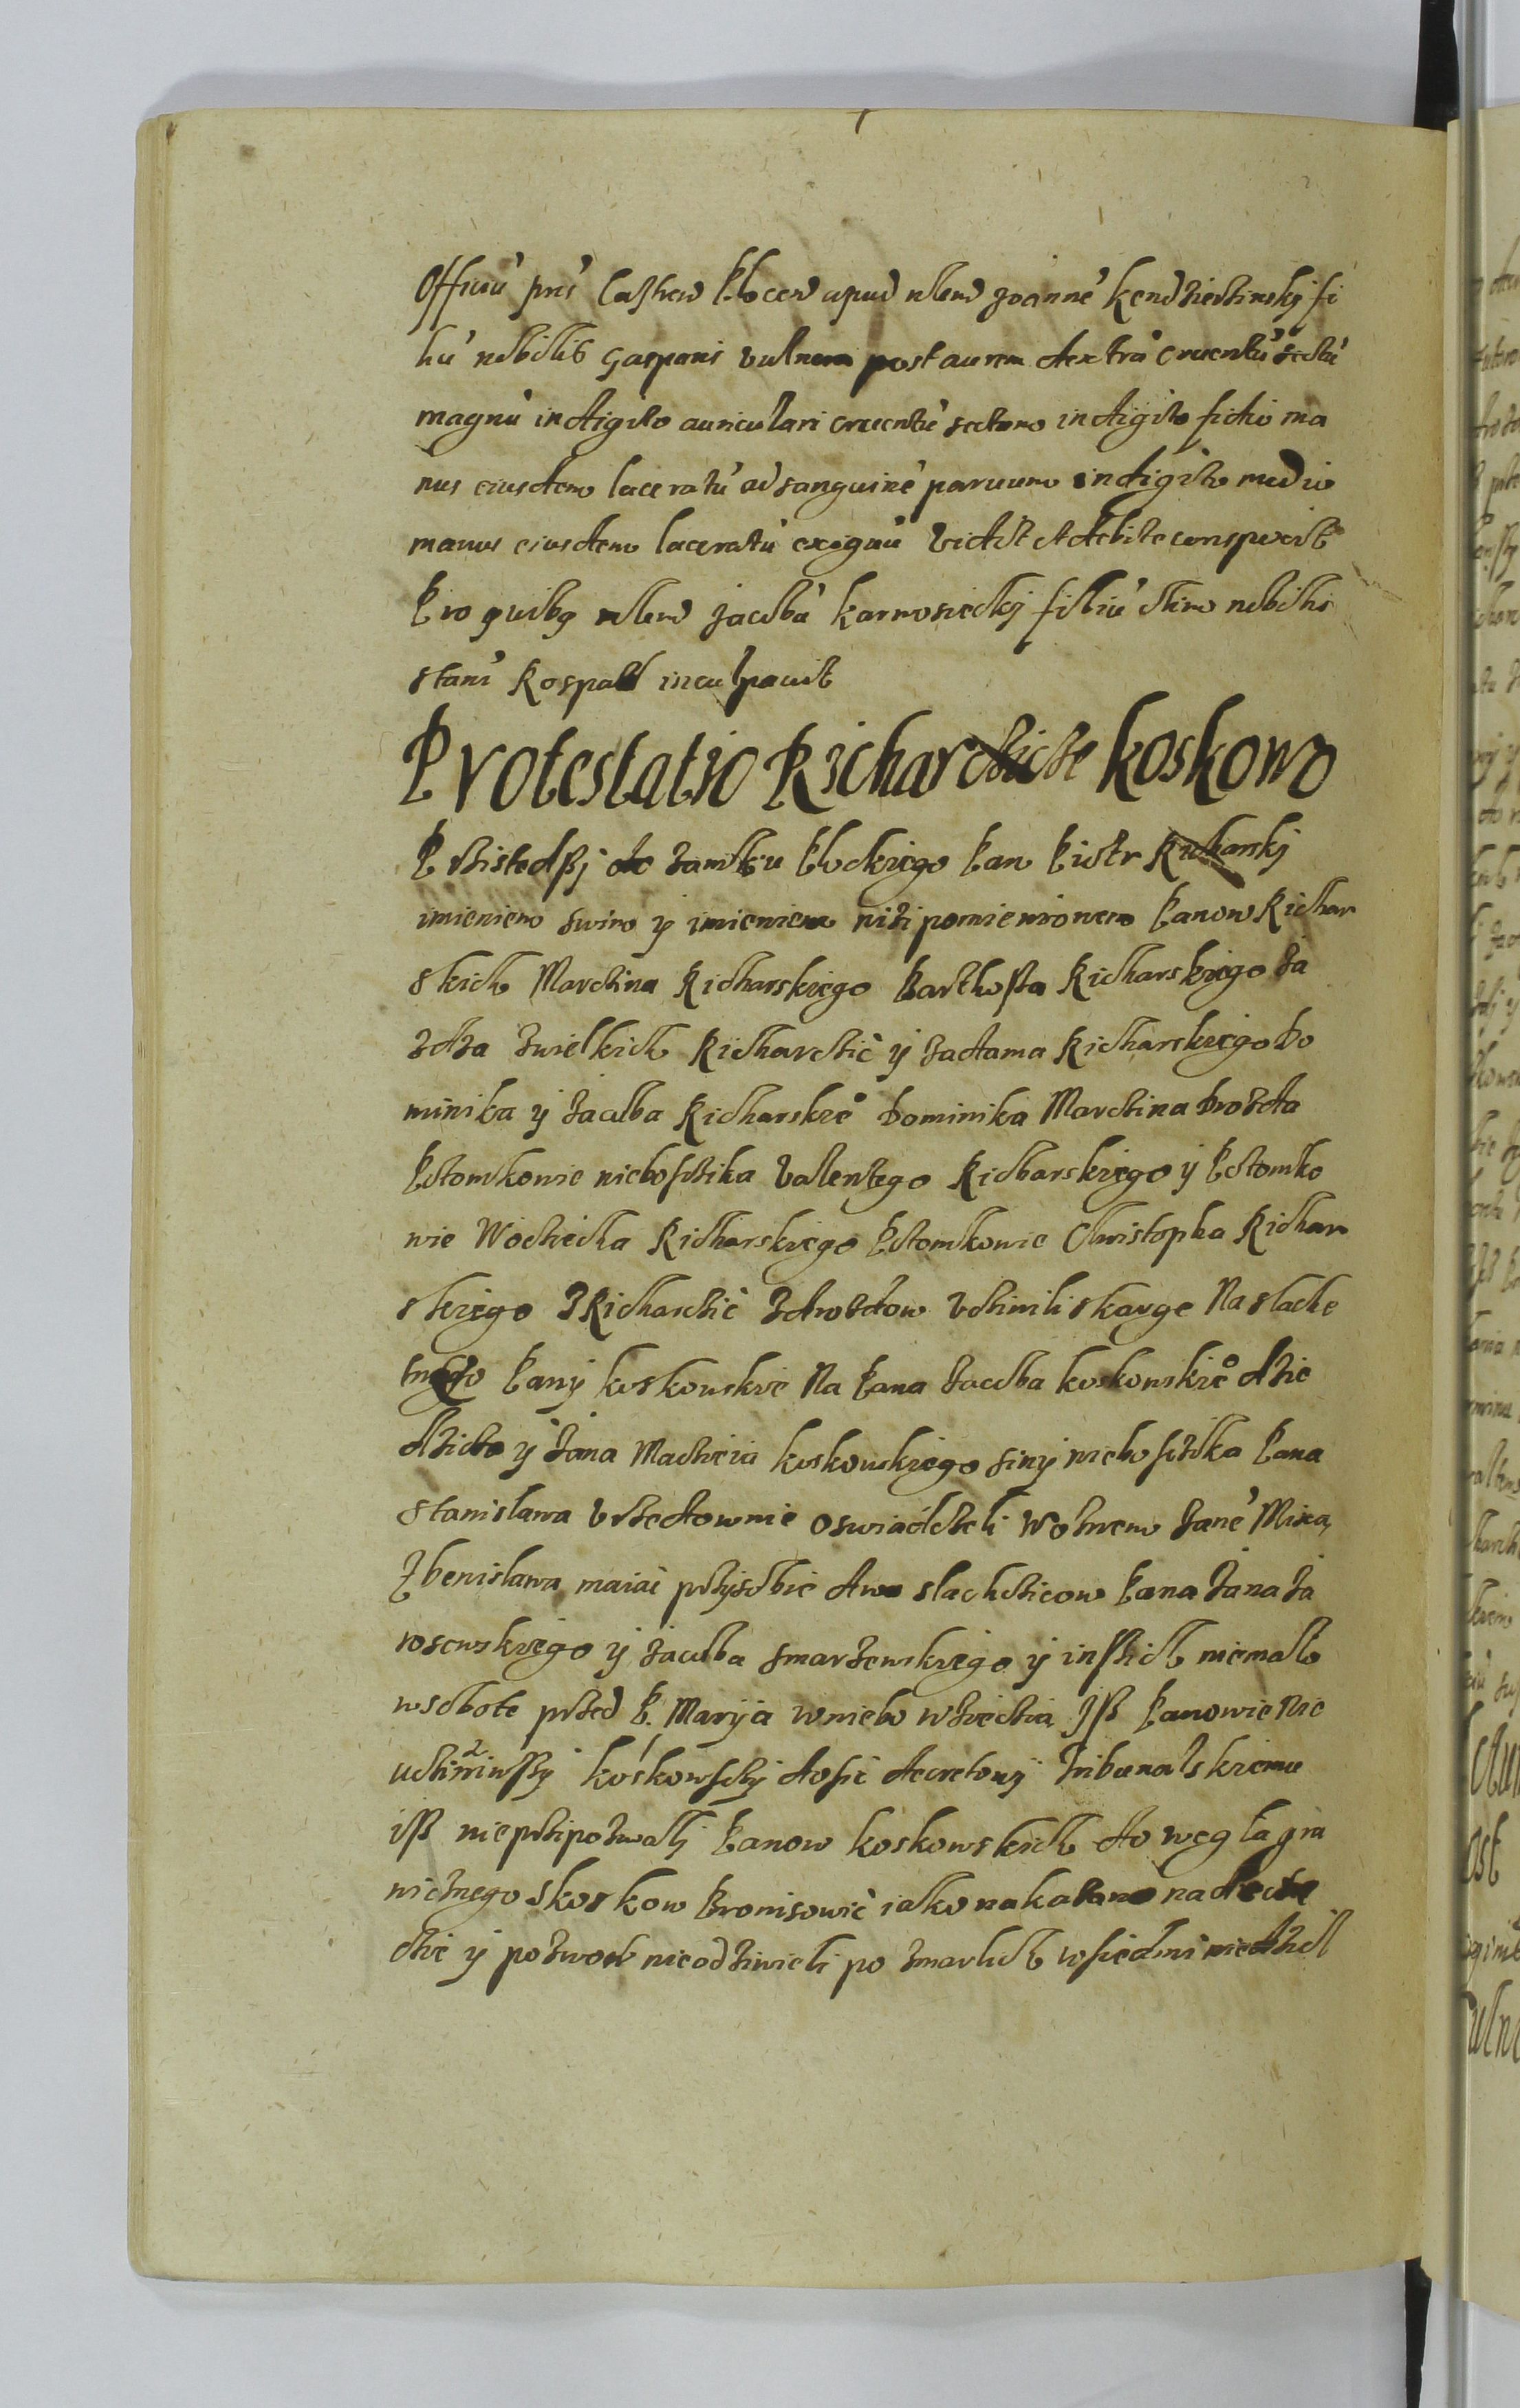 Officiu prns Castren Plocen apud nblem Joanne Kendzierzinskj fi
liu nobilis Gaspari vulnera post aurem dextra cruentu sectu
magnu in digito auriculari cruentu sectum in digito fidio ma
nus eiusdem laceratu ad sanguine paruum in digito medio
manus eiusdem laceratu exiguu vidit et debite conspexit
Pro quibq nblem Jacobu Karnosieckj filiu olim nobilis
Stani Rospad inculpauit
Protestatio Richarczicze Koskowo
Prziszedszj do Zamku Plockiego Pan Piotr Richarskj
imieniem swim y imieniem nizipomienionem Panow Richar
skich Marczina Richarskiego Barthosza Richarskiego Ja
zwielkich Richarczic y Jadama Richarskiego Do
minika y Jacuba Richarskie° Dominika Marczina Drozda
Potomkowie nieboszczika Valentego Richarskiego y Potomko
wie Woicziecha Richarskiego Potomkowie Christopha Richar
skiego Z Richarczic Zdrozdow vczinili skarge Na slache
Pany Koskowskie Na Pana Jacuba Koskowskie° dzie
dzicza y Jana Maczieia Koskowskiego siny nieboszczika Pana
Stanislawa vrzedownie oswiadczeli Woznem Jane Mira
Zbenislawa maiac przysobie dwo slachczicow Pana Jana Ja
rosewskiego y Jacuba Smarzewskiego y inszich niemalo
wsobote przed P. Maryia wniebo wzieczia Jsz Panowie Nie
ucziniwszy Koskowsczy dosic decretowy Tribunalskiemu
isz nieprzipozwalj Panow Koskowskich do wegla gra
nicznego Skoskow Bronisowic iako nakazano nadecre
cie y pozwow nieodziwieli po zmarlich wsiedmi niedziel